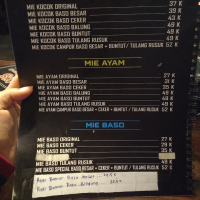 MIE KOCOK ORIGINAL 37 K
MIE KOCOK BASO BESAR 39 K
MIE KOCOK BASO CEKER 43 K
MIE KOCOK BASO BALUNG 49 K
MIE KOCOK BASO BUNTUT 49 K
MIE KOCOK BASO TULANG RUSUK 49 K
MIE KOCOK CAMPUR BASO BESAR + BUNTUT/ TULANG RUSUK 52 K
MIE AYAM
MIE AYAM ORIGINAL 27 K
MIE AYAM BASO BESAR 31 K
MIE AYAM BASO CEKER 35 K
MIE AYAM BASO BALUNG
MIE AYAM BASO BUNTUT
MIE AYAM BASO TULANG RUSUK
MIE AYAM CAMPUR BASO BESAR + CEKER + BUNTUT/ TULANG RUSUK 52 K
MIE BASO
MIE BASO ORIGINAL 27 K
MIE BASO CEKER 29 K
MIE BASO BUNTUT 35 K
MIE BASO TULANG RUSUK 49 K
MIE BASO SPECIAL BASO BESAR + CEKER + BUNTUT/ TULANG RUSUK 52 K